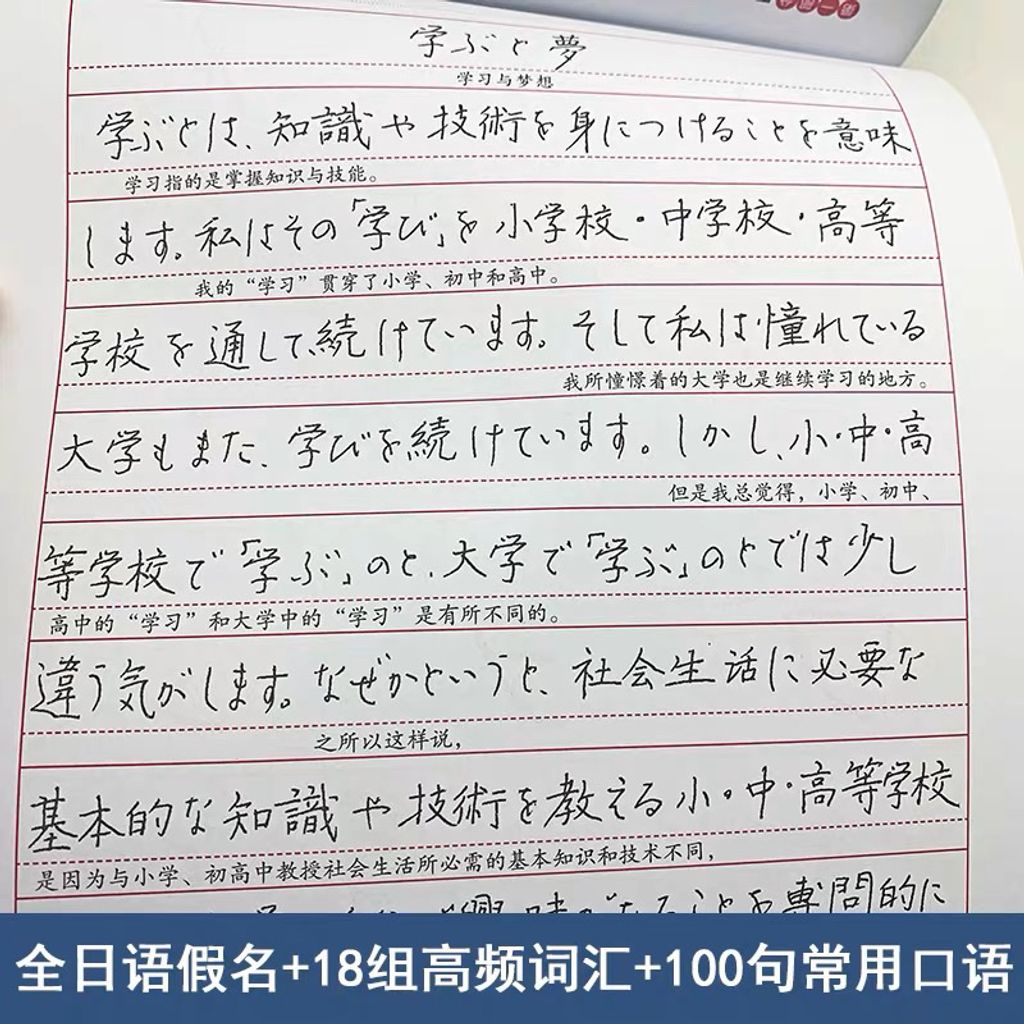 学ぶと夢
学习与梦想
学ぶとは、知識や技術を身につけることを意味
学习指的是掌握知识与技能。
します。私はその「学び」を小学校・中学校・高等
我的“学习”贯穿了小学、初中和高中。
学校を通して、続けています。そして私は憧れている
我所憧憬着的大学也是继续学习的地方。
大学もまた、学びを続けています。しかし、小・中・高
但是我总觉得，小学、初中、
等学校で「学ぶ」のと、大学で「学ぶ」のとでは少し
高中的“学习”和大学中的“学习”是有所不同的。
違う気がします。なぜかというと、社会生活に必要な
之所以这样说，
基本的な知識や技術を教える小・中・高等学校
是因为与小学、初高中教授社会生活所必需的基本知识和技术不同，
ことを専門的に
全日语假名+18组高频词汇+100句常用口语